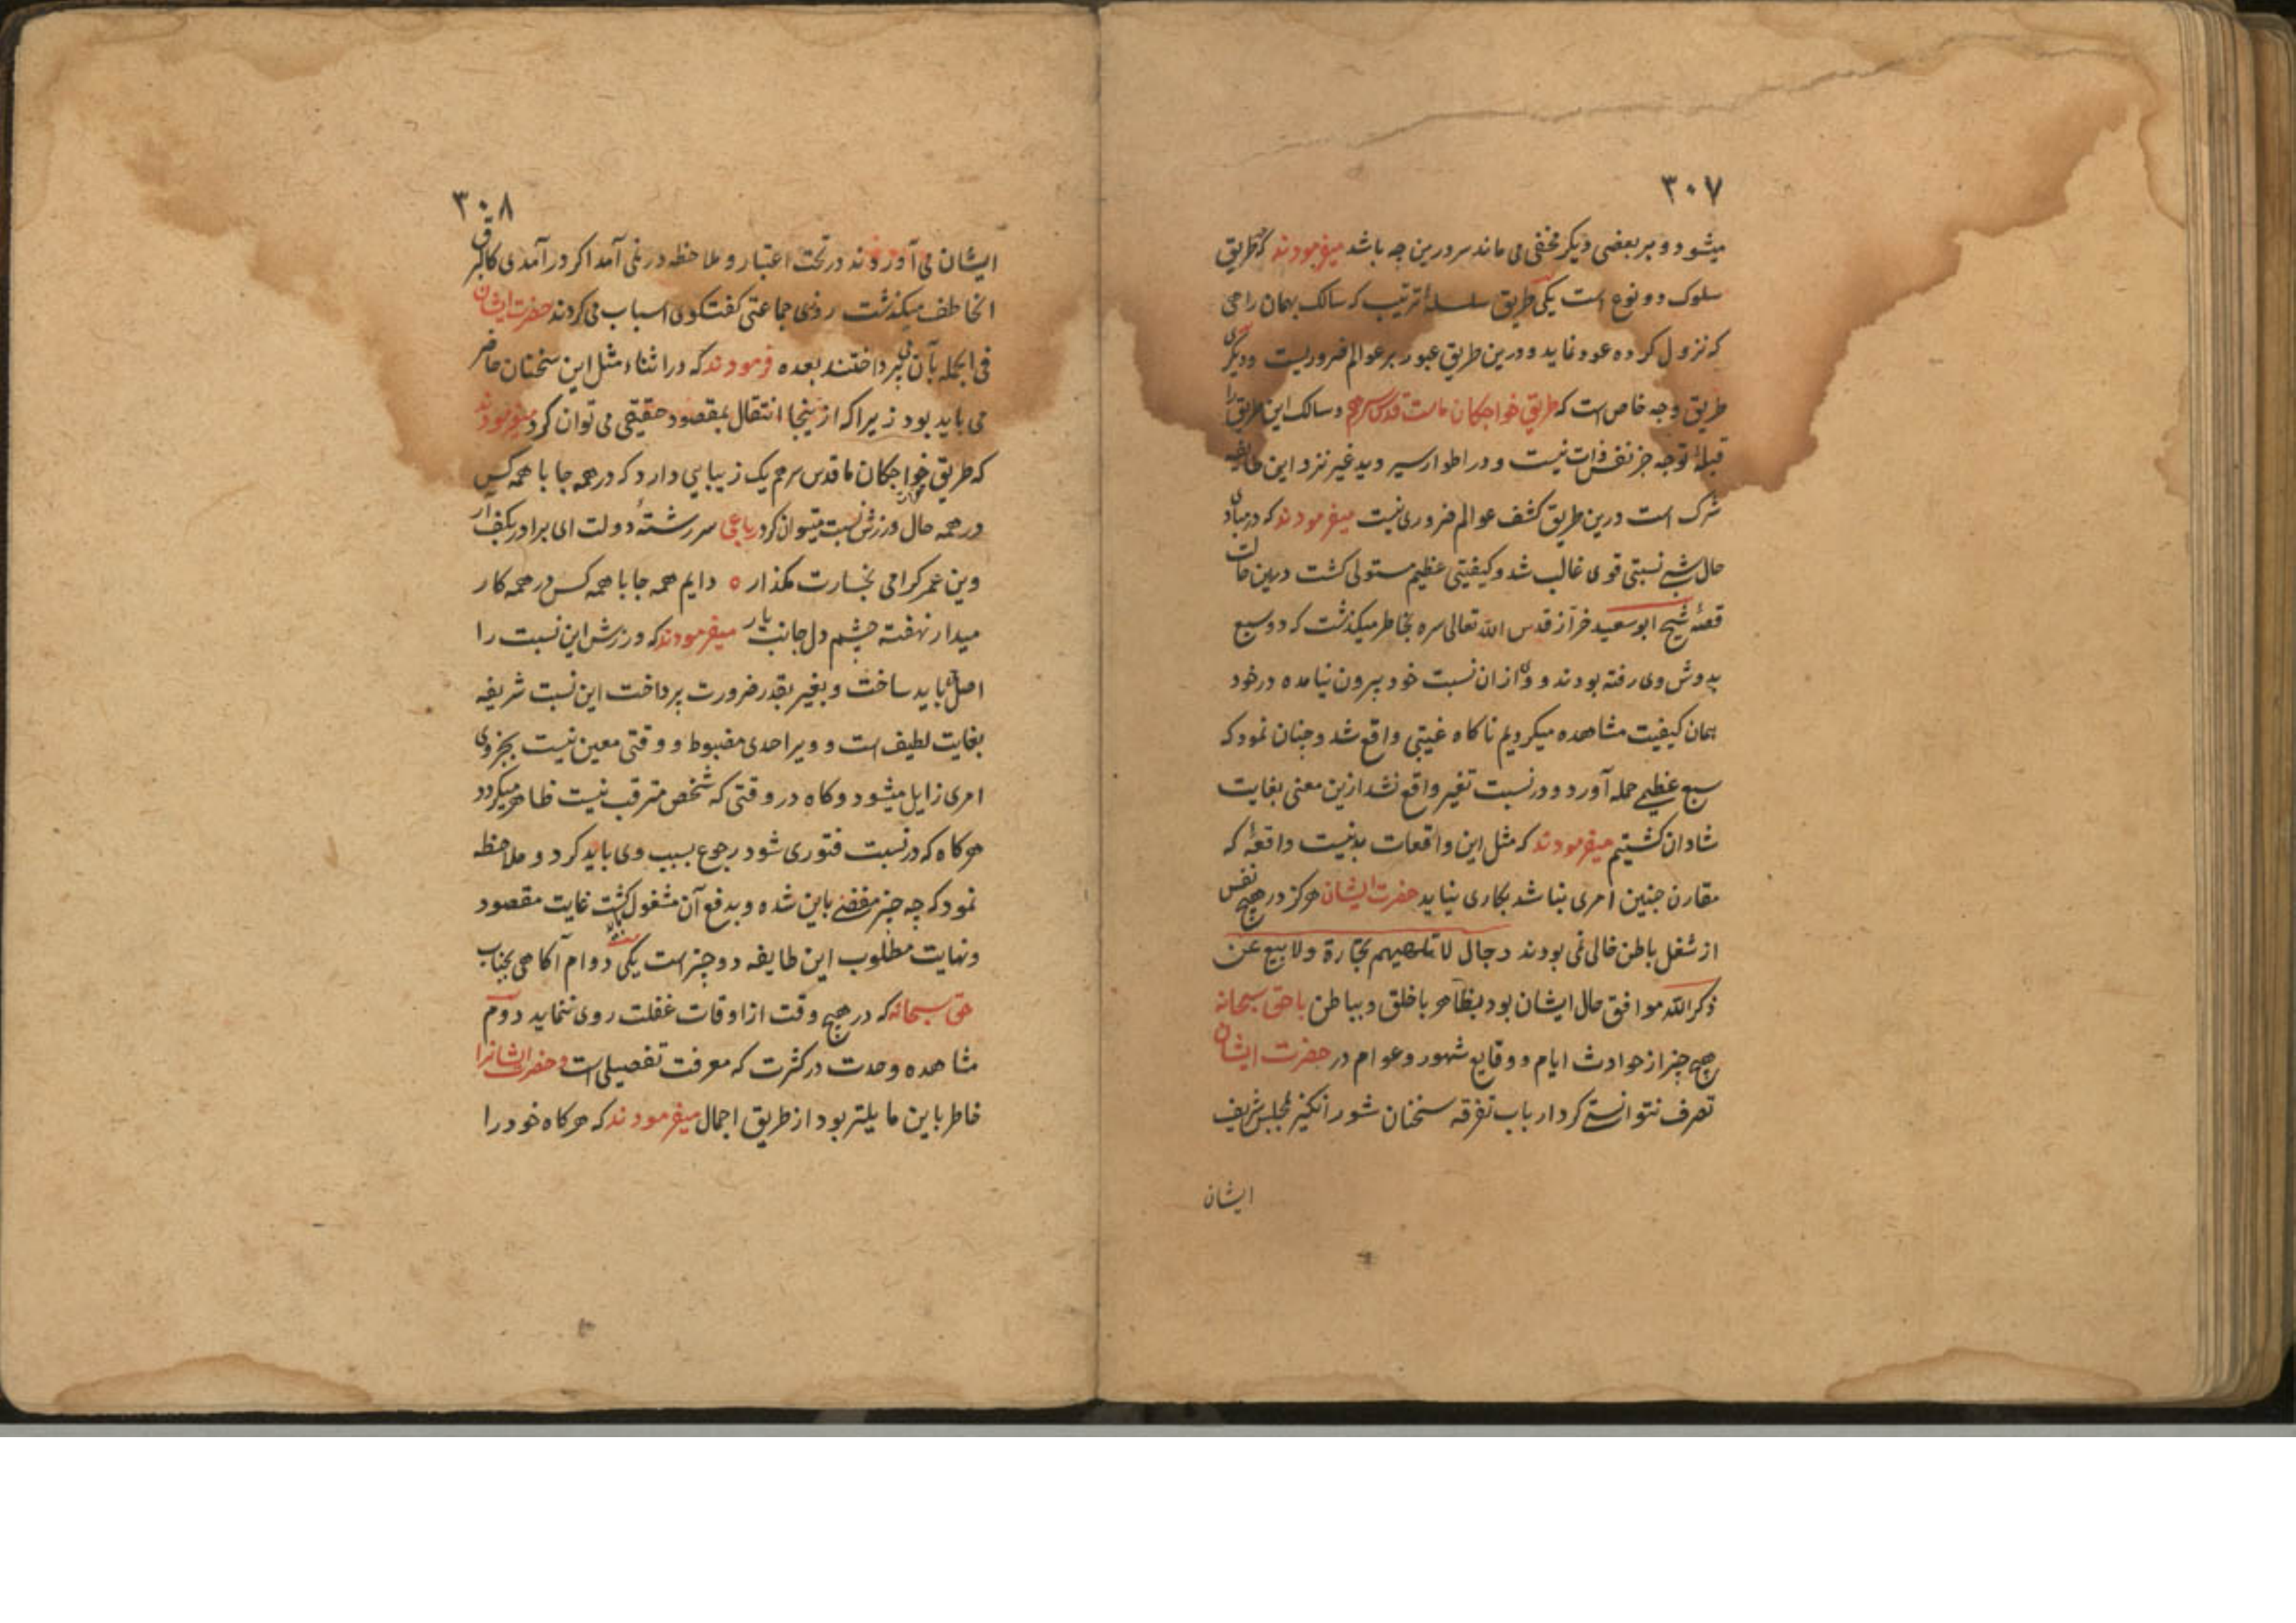 ۳۰۷
میشود و بر بعضی دیکر مخفی می ماند سر درین چه باشد میفرمودند که طریق
سلوک دو نوع است یکی طریق سلسلهٔ ترتیب که سالک بهمان راهی
که نزول کرده عود نماید و درین طریق عبور بر عوالم ضروریست و دیکری
طریق وجه خاص است که طریق خواجکان ماست قدس سرهم و سالک این طریق را
قبلهٔ توجه جز نفس ذات نیست و در اطوار سیر دید غیر نزد این طایفه
شرک است درین طریق کشف عوالم ضروری نیست میفرمودند که در مبادی
حال شبی نسبتی قوی غالب شد و کیفیتی عظیم مستولی کشت درین حالت
قصهٔ شیخ ابو سعید خراز قدس الله تعالی سره بخاطر میکذشت که دو سبع
بدوش وی رفته بودند و وی ازان نسبت خود بیرون نیامده در خود
همان کیفیت مشاهده میکردیم ناکاه غیبتی واقع شد و چنان نمود که
سبع عظیمی حمله آورد و در نسبت تغیر واقع نشد ازین معنی بغایت
شادان کشتیم میفرمودند که مثل این واقعات بد نیست واقعهٔ که
مقارن چنین امری نباشد بکاری نیاید حضرت ایشان هرکز در هیچ نفس
از شغل باطن خالی نمی بودند رجال لا تلهیهم تجارة ولا بیع عن
ذکر الله موافق حال ایشان بود بظاهر با خلق و بباطن با حق سبحانه
هیچ چیز از حوادث ایام و وقایع شهور و عوام در حضرت ایشان
تصرف نتوانستی کرد ارباب تفرقه سخنان شور انکیز بمجلس شریف
ایشان
۳۰۸
ایشان می آوردند در تحت اعتبار و ملاحظه در نمی آمد اکر در آمدی کالبرق
الخاطف میکذشت روزی جماعتی کفتکوی اسباب می کردند حضرت ایشان
فی الجمله بآن می پرداختند بعده فرمودند که در اثناء مثل این سخنان حاضر
می باید بود زیرا که از اینجا انتقال بمقصود حقیقی می توان کرد میفرمودند
که طریق خواجکان ما قدس سرهم یک زیبایی دارد که در همه جا با همه کس
در همه حال ورزش نسبت میتوان کرد رباعی سر رشتهٔ دولت ای برادر بکف آر
وین عمر کرامی بخسارت مکذار ه دایم همه جا با همه کس در همه کار
میدار نهفته چشم دل جانب یار میفرمودند که ورزش این نسبت را
اصل باید ساخت و بغیر بقدر ضرورت پرداخت این نسبت شریفه
بغایت لطیف است و ویرا حدی مضبوط و وقتی معین نیست بجزوی
امری زایل میشود و کاه در وقتی که شخص مترقب نیست ظاهر میکردد
هر کاه که در نسبت فتوری شود رجوع بسبب وی باید کرد و ملاحظه
نمود که چه چیز مفضی باین شده و بدفع آن مشغول کشت غایت مقصود
و نهایت مطلوب این طایفه دو چیز است یکی دوام آکاهی بجناب
حق سبحانه که در هیچ وقت از اوقات غفلت روی ننماید دوم
مشاهده وحدت در کثرت که معرفت تفصیلی است و حضرت ایشانرا
خاطر باین مایلتر بود از طریق اجمال میفرمودند که هر کاه خود را